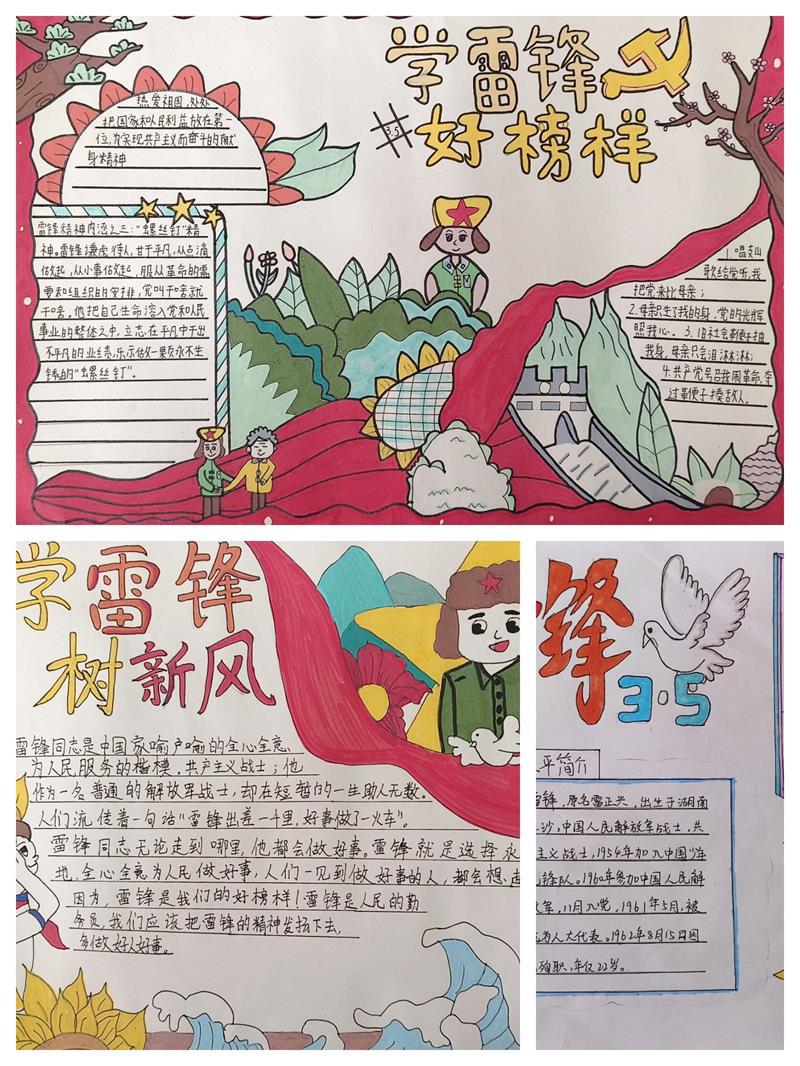 学雷锋
#3.5
好榜样
热爱祖国,处处
把国家和人民利益放在第一
位,为实现共产主义而奋斗的献
身精神
雷锋精神内涵之三:“螺丝钉”精
神。雷锋谦虚待人,甘于平凡,从点滴
做起,从小事做起,服从革命的需
要和组织的安排,党叫干啥就
干啥。他把自己生命溶入党和人民
事业的整体之中,立志,在平凡中干出
不平凡的业绩,乐示做一果员永不生
锈的“螺丝钉”。
1.唱支山
歌给党听,我
把党来比母亲;
2.母亲只生了我的身,党的光辉
照我心。3.旧社会鞭便子抽
我身,母亲只会泪淋淋;
4.共产党号召我闹革命,夺
过革便子揍敌人。
学雷锋
树新风
雷锋同志是中国家喻户喻的全心全意
为人民服务的楷模,共产主义战士;他
作为一名普通的解放军战士,却在短暂的一生助人无数。
人们流传着一句话“雷锋出差一千里,好事做了一火车”。
雷锋同志无论走到哪里,他都会做好事。雷锋就是选择永
地,全心全意为人民做好事,人们一见到做好事的人,都会想起
因为,雷锋是我们的好榜样!雷锋是人民的勤
务员,我们应该把雷锋的精神发扬下去,
多做好人好事。
锋
3·5
平简介
雷锋,原名雷正兴,出生于湖南
沙,中国人民解放军战士,共
主义战士,1954年加入中国少年
锋队。1960年参加中国人民解
放军,11月入党,1961年5月,被
为人大代表。1962年8月15日因
殉职,年仅22岁。